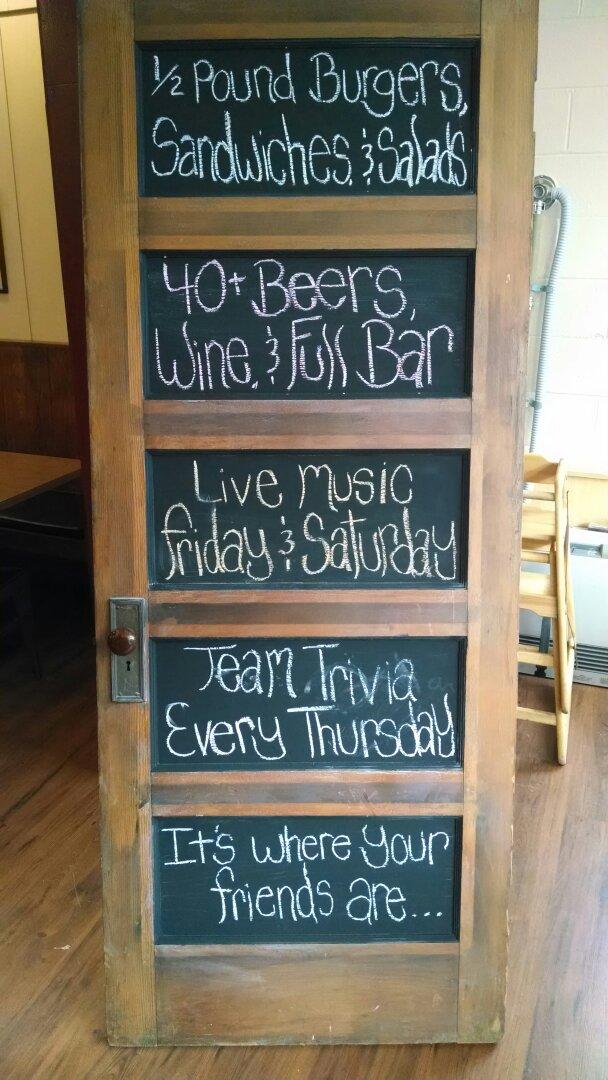 1/2 Pound Burgers,
Sandwiches, & Salads
40+ Beers,
Wine, & Full Bar
Live Music
Friday & Saturday
Team Trivia
Every Thursday
It's where your
friends are...